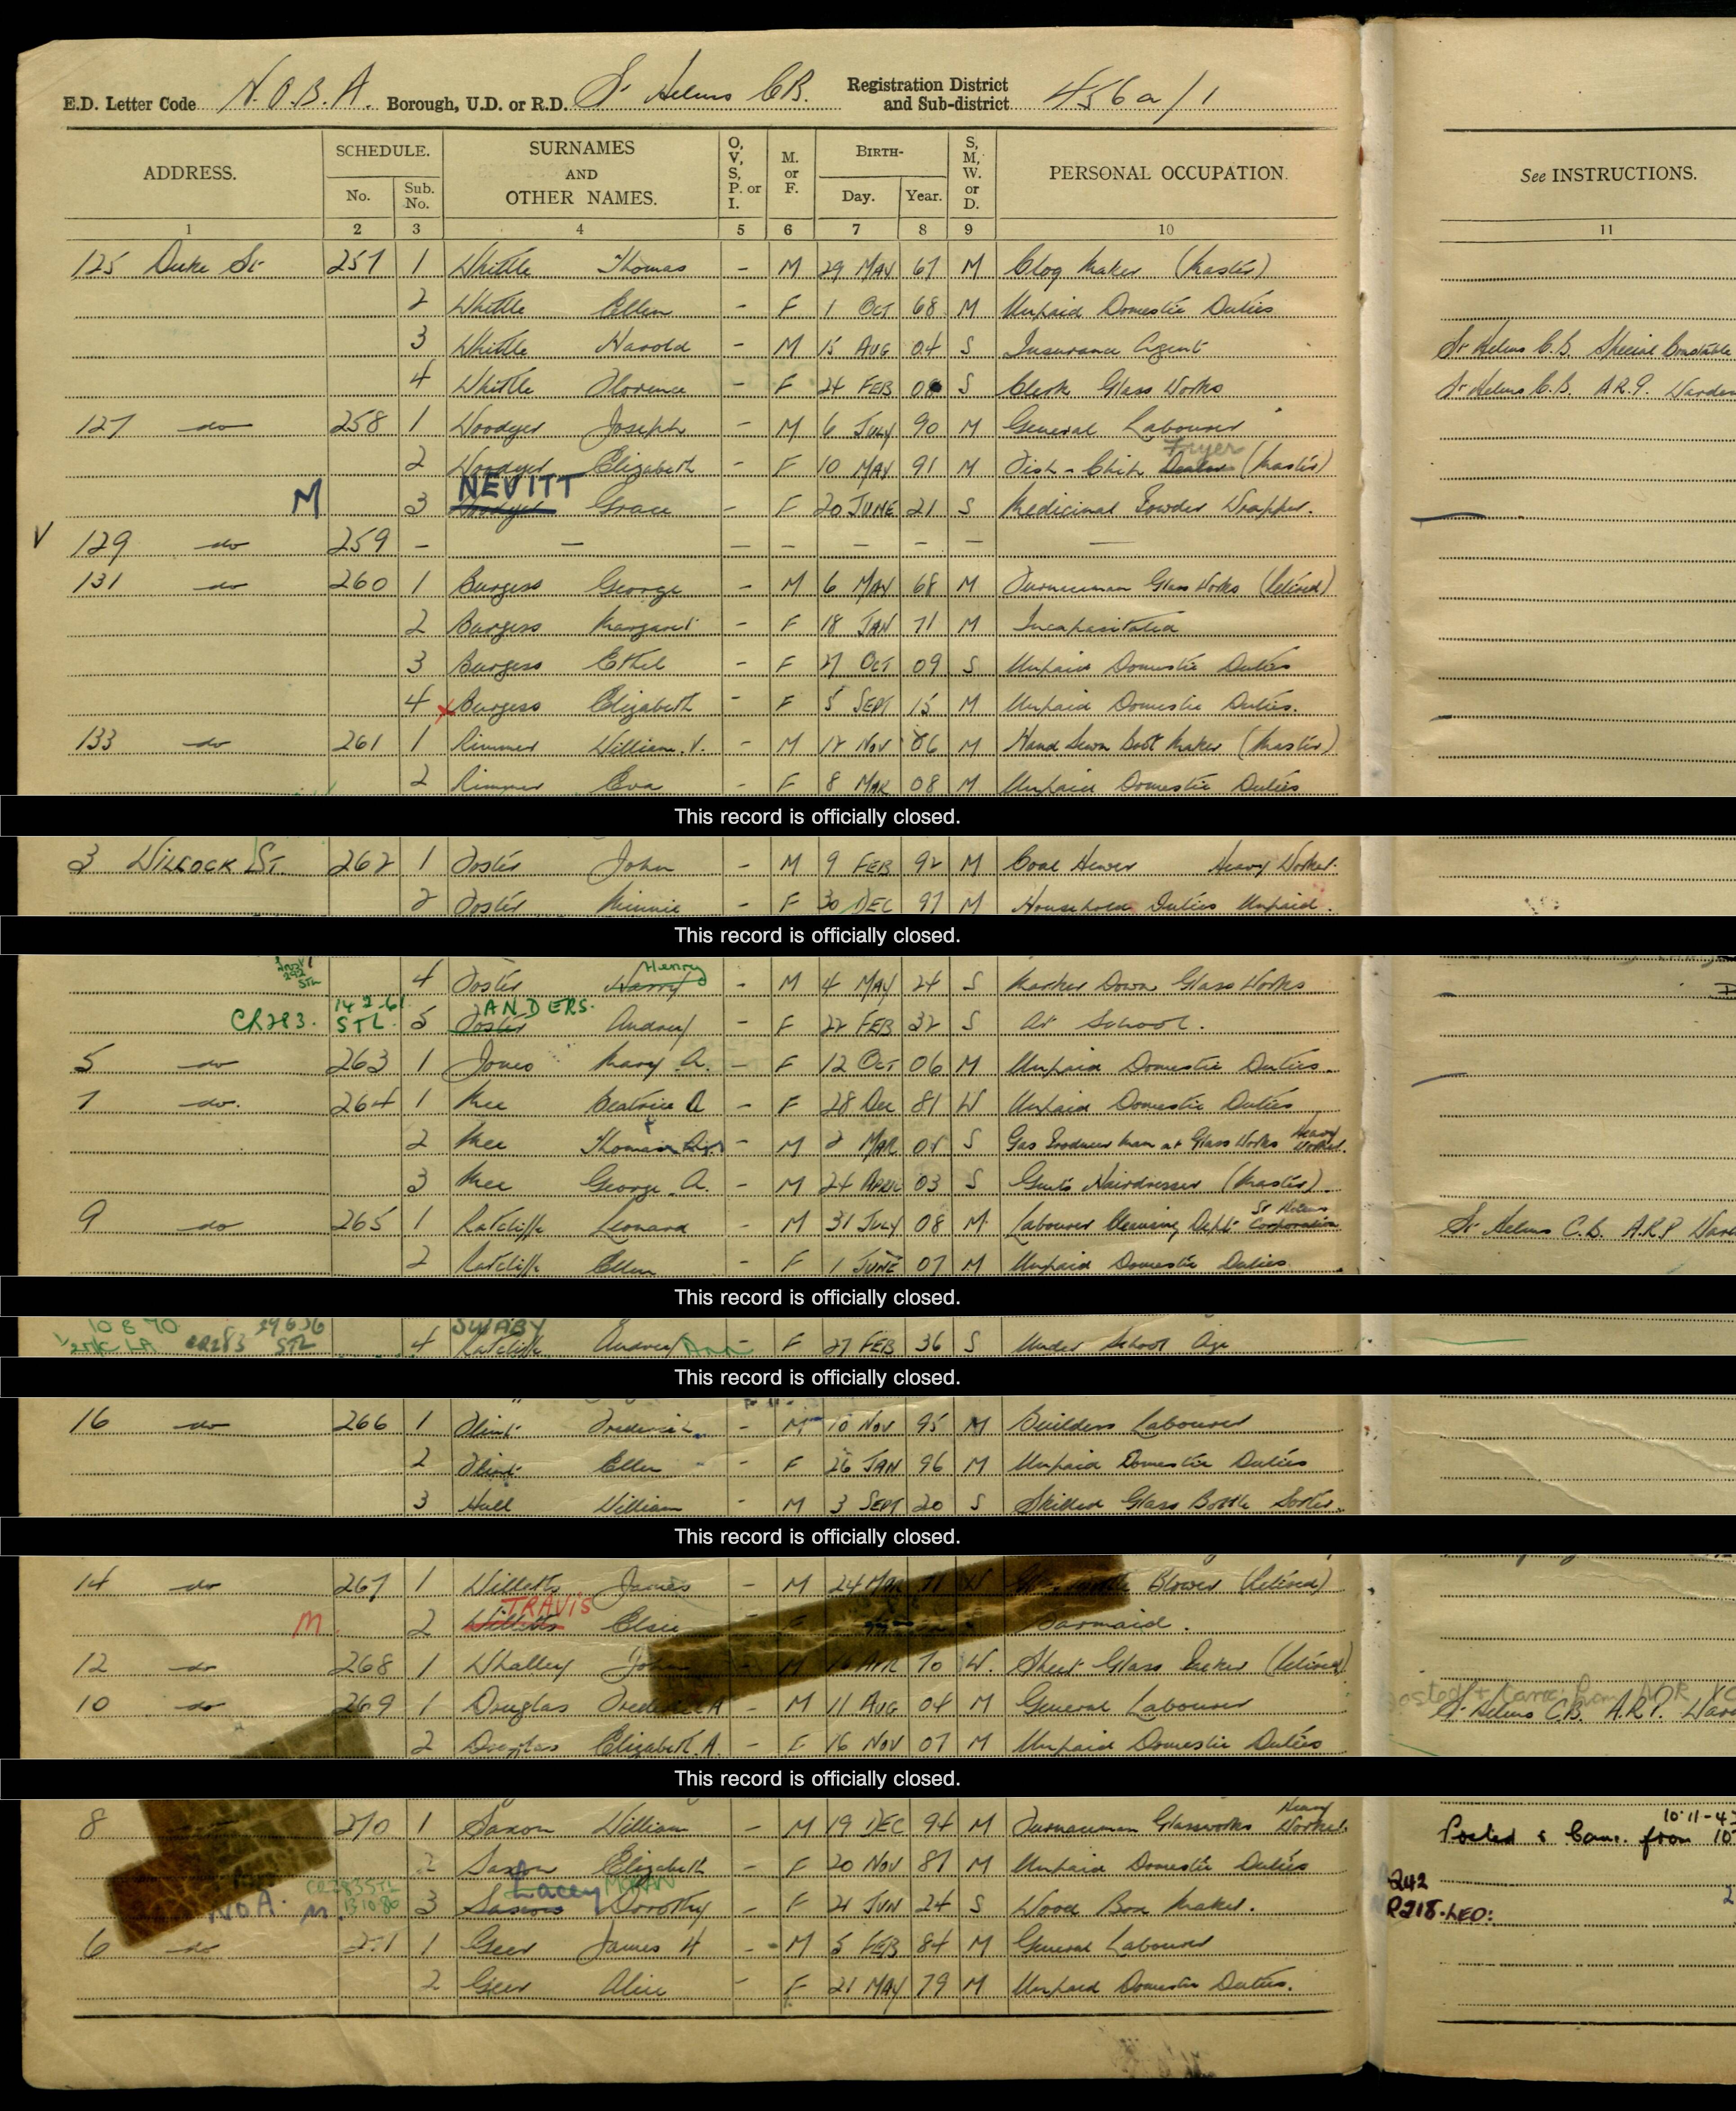 E.D. Letter Code N.O.B.A. Borough, U.D. or R.D. St Helens C.B. Registration District and Sub-district 456a/1
ADDRESS. SCHEDULE. No. Sub. No. SURNAMES AND OTHER NAMES. O, V, S, P. or I. M. or F. BIRTH- Day. Year. S, M, W. or D. PERSONAL OCCUPATION. See INSTRUCTIONS.
1 2 3 4 5 6 7 8 9 10 11
125 Duke St 257 1 Whittle Thomas - M 29 MAY 67 M Clog Maker (Master)
2 Whittle Ellen - F 1 OCT 68 M Unpaid Domestic Duties
3 Whittle Harold - M 15 AUG 04 S Insurance Agent St Helens C.B. Special Constable
4 Whittle Florence - F 24 FEB S Clerk Glass Works St Helens C.B. A.R.P. Warden
127 do 258 1 Woodyer Joseph - M 6 JULY 90 M General Labourer
2 Woodyer Elizabeth - F 10 MAY 91 M Fish-Chip Dealer Fryer (Master)
M 3 Woodyer NEVITT Grace - F 20 JUNE 21 S Medicinal Powder Wrapper.
V 129 do 259 - - - - - - - -
131 do 260 1 Burgess George - M 6 MAY 68 M Furnaceman Glass Works (Retired)
2 Burgess Margaret - F 18 JAN 71 M Incapacitated
3 Burgess Ethel - F 27 OCT 09 S Unpaid Domestic Duties
4 x Burgess Elizabeth - F 5 SEPT 15 M Unpaid Domestic Duties.
133 do 261 1 Rimmer William. V. - M NOV 06 M Hand Sewn Boot Maker (Master)
2 Rimmer Eva - F 8 MAR 08 M Unpaid Domestic Duties
This record is officially closed.
3 WILCOCK ST. 262 1 Foster John - M 9 FEB 92 M Coal Hewer Heavy Worker.
2 Foster Minnie - F 30 DEC 97 M Household Duties Unpaid.
This record is officially closed.
4 Foster Harry Henry - M 4 MAY 24 S Marker Down Glass Works
CR283. 14.2.61 STL. 5 Foster ANDERS. Audrey - F 22 FEB 32 S At School.
5 do 263 1 Jones Mary A. - F 12 OCT 06 M Unpaid Domestic Duties.
7 do. 264 1 Mee Beatrice A - F 28 Dec 81 W Unpaid Domestic Duties
2 Mee Thomas - M 2 MAR S Gas Producer Man at Glass Works Heavy Worker.
3 Mee George. A. - M 24 APRIL 03 S Gents Hairdresser (Master).
9 do 265 1 Ratcliffe Leonard - M 31 JULY 08 M. Labourer Cleansing Dept. St Helens Corporation St Helens C.B. A.R.P
2 Ratcliffe Ellen - F 1 JUNE 07 M Unpaid Domestic Duties.
This record is officially closed.
10 8 70 CR283 29 6 56 STL 4 Ratcliffe SWABY Audrey Ann - F 27 FEB 36 S Under School Age
This record is officially closed.
16 do 266 1 Flint Frederick. - M 10 NOV 95 M Builders Labourer
2 Flint Ellen - F 26 JAN 96 M Unpaid Domestic Duties
3 Hall William - M 3 SEPT 20 S Skilled Glass Bottle Sorter.
This record is officially closed.
14 do 267 1 Willetts James - M 24 MAR W Blower (Retired)
M. 2 Willetts TRAVIS Elsie Barmaid.
12 do 268 1 Whalley John M 16 APR 70 W. Sheet Glass (Retired)
10 do 269 1 Douglas Frederick A - M 11 AUG 04 M General Labourer St Helens C.B. A.R.P.
2 Douglas Elizabeth. A. - F 16 NOV 07 M Unpaid Domestic Duties
This record is officially closed.
8 270 1 Saxon William - M 19 DEC 94 M Furnaceman Glassworks Heavy Worker. Posted & Canc. from 10-11-43
2 Saxon Elizabeth - F 20 NOV 87 M Unpaid Domestic Duties
NOA. M. CR283 STL 13 10 80 3 Saxon Lacey MORAN Dorothy - F 21 JUN 24 S Wood Box Maker. 242 R218.LEO:
6 do 271 1 Geer James H - M 5 FEB 84 M General Labourer
2 Geer Alice - F 21 MAY 79 M Unpaid Domestic Duties.